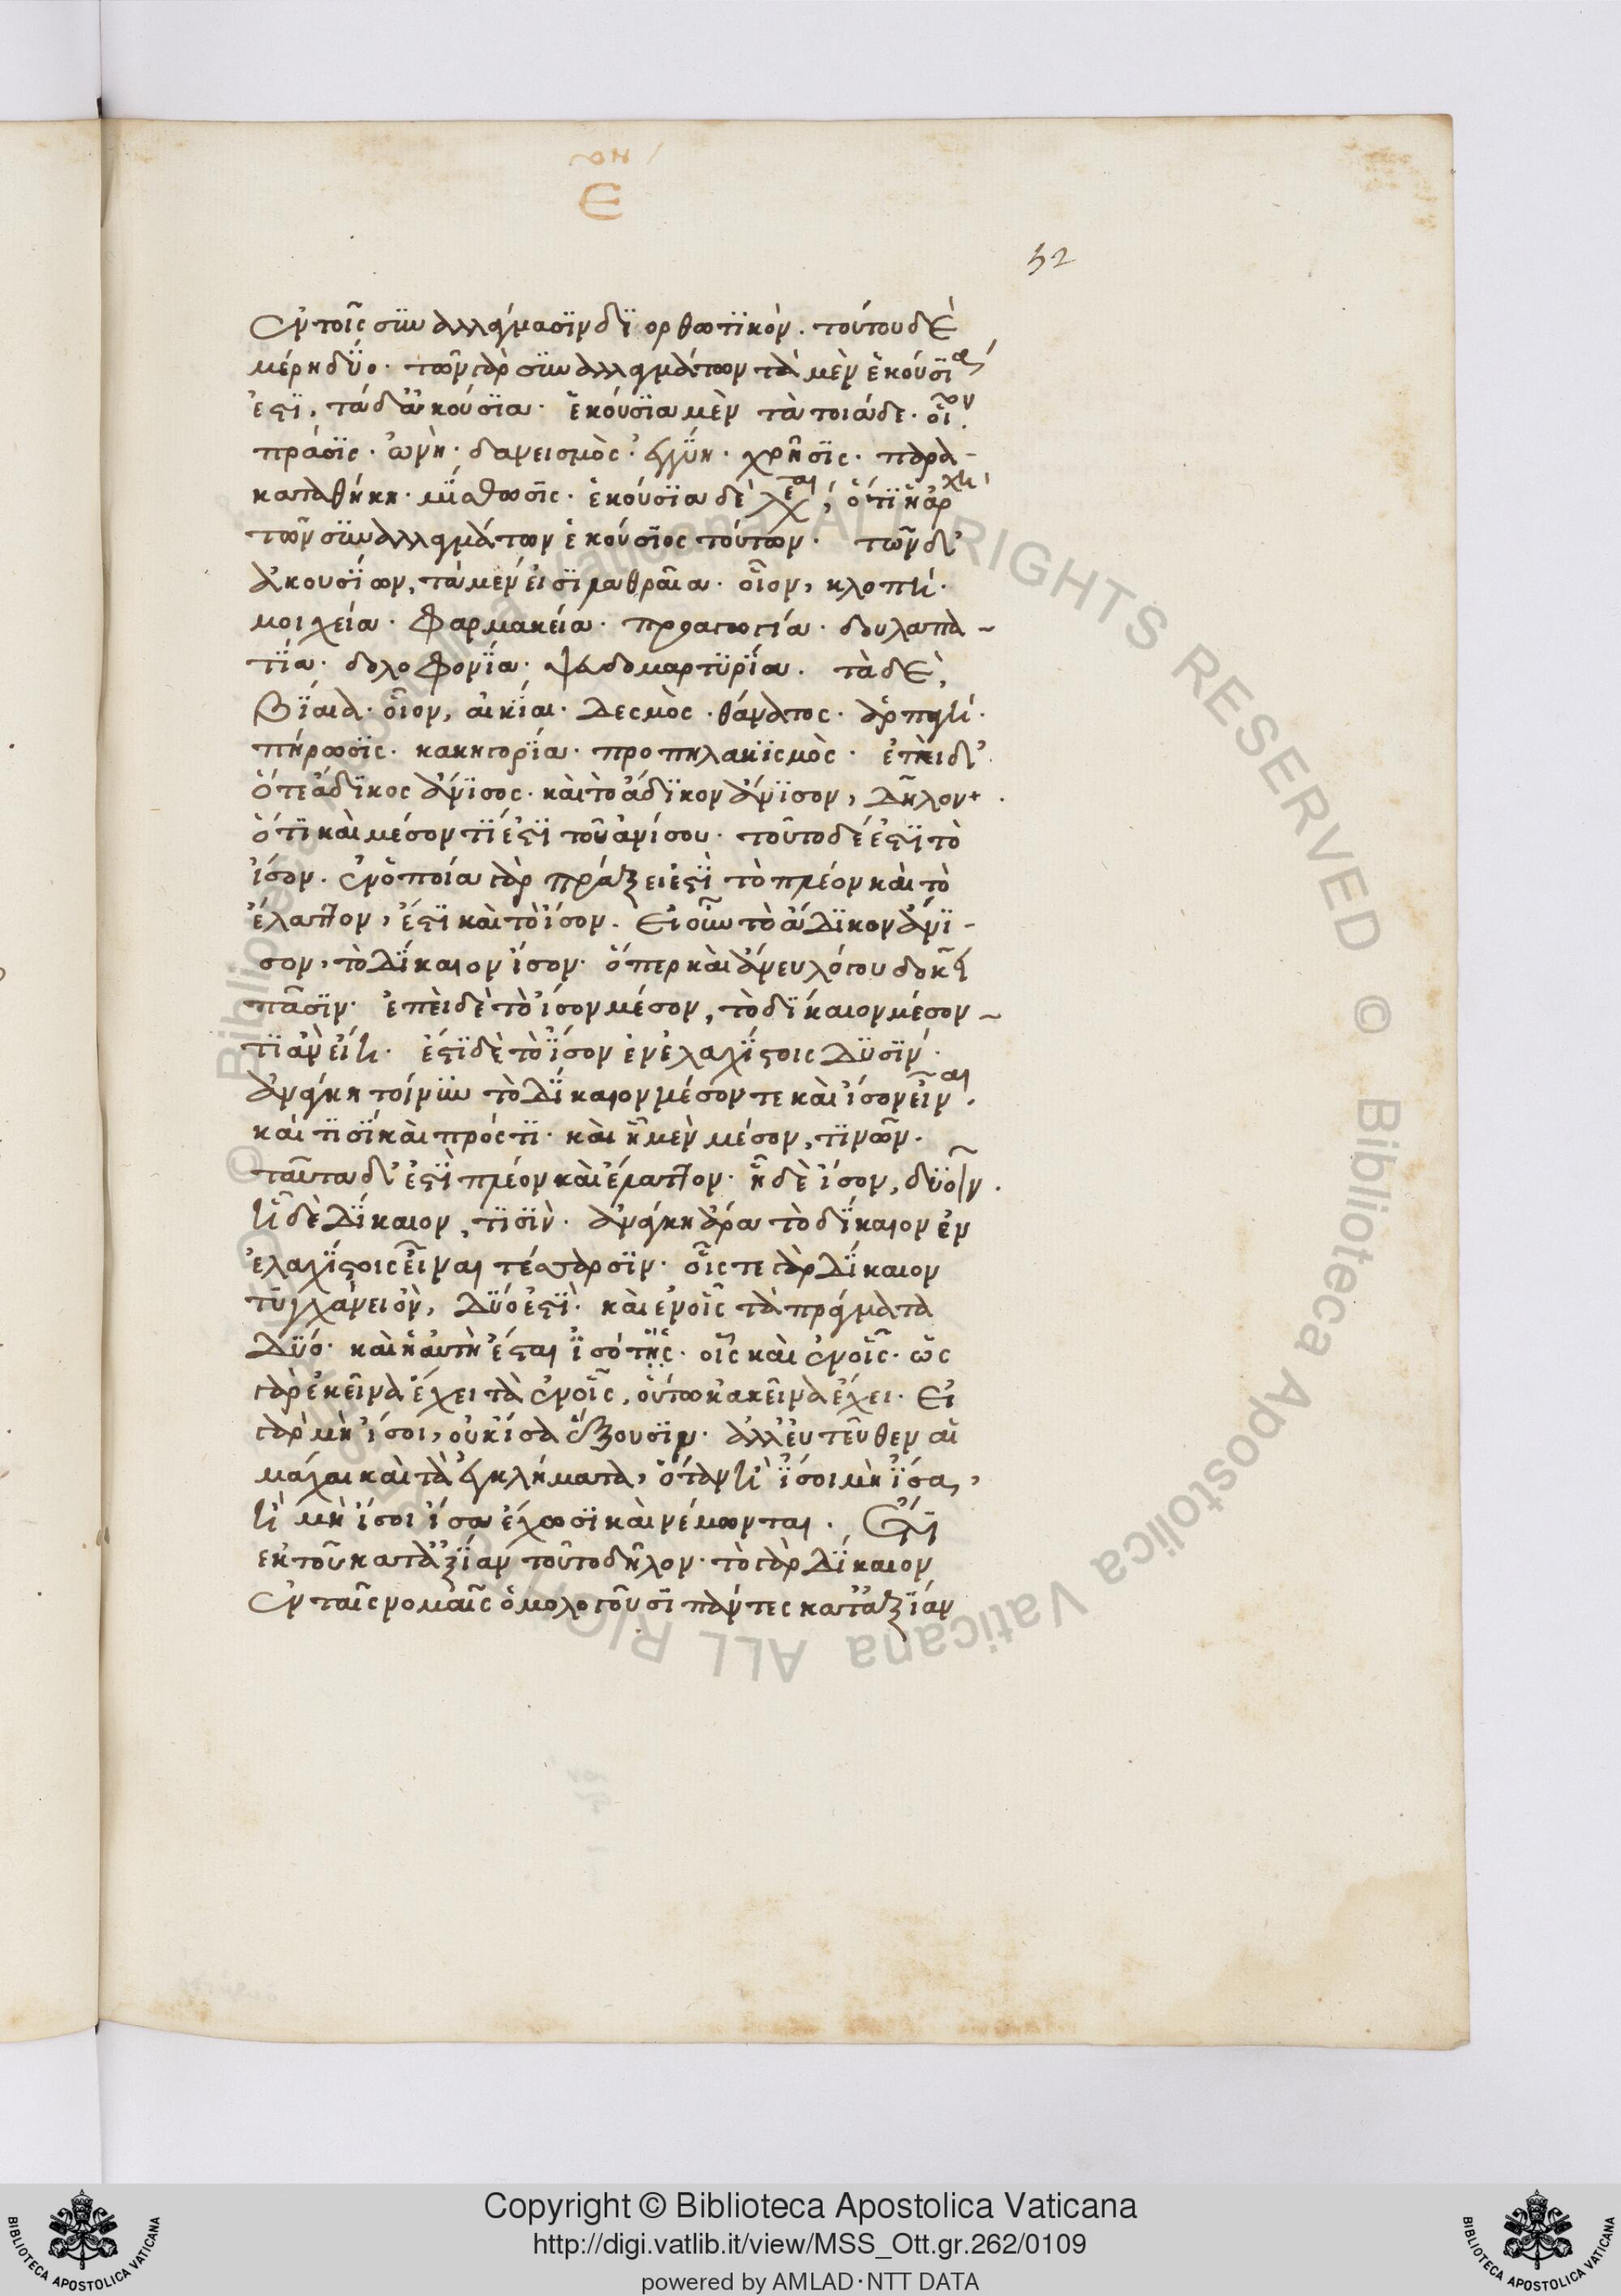 Ε
52
ἐν τοῖς συναλλάγμασιν διορθωτικόν. τούτου δὲ
μέρη δύο. τῶν γὰρ συναλλαγμάτων τὰ μὲν ἑκούσιά
ἐστι, τὰ δ' ἀκούσια. ἑκούσια μὲν τὰ τοιάδε. οἷον
πρᾶσις. ὠνή. δανεισμός. ἐγγύη. χρῆσις. παρα-
καταθήκη. μίσθωσις. ἑκούσια δὲ λέγεται, ὅτι ἡ ἀρχὴ
τῶν συναλλαγμάτων ἑκούσιος τούτων. τῶν δ'
ἀκουσίων, τὰ μέν εἰσι λαθραῖα. οἷον, κλοπή.
μοιχεία. φαρμακεία. προαγωγία. δουλαπα-
τία. δολοφονία. ψευδομαρτυρία. τὰ δὲ,
βίαια. οἷον, αἰκία. δεσμὸς. θάνατος. ἁρπαγή.
πήρωσις. κακηγορία. προπηλακισμὸς. ἐπεὶ δ'
ὅ τε ἄδικος ἄνισος. καὶ τὸ ἄδικον ἄνισον, δῆλον
ὅτι καὶ μέσον τί ἐστι τοῦ ἀνίσου. τοῦτο δέ ἐστι τὸ
ἴσον. ἐν ὁποίᾳ γὰρ πράξει ἐστὶ τὸ πλέον καὶ τὸ
ἔλαττον, ἔστι καὶ τὸ ἴσον. Εἰ οὖν τὸ ἄδικον ἄνι-
σον, τὸ δίκαιον ἴσον. ὅπερ καὶ ἄνευ λόγου δοκεῖ
πᾶσιν. ἐπεὶ δὲ τὸ ἴσον μέσον, τὸ δίκαιον μέσον
τι ἂν εἴη. ἔστι δὲ τὸ ἴσον ἐν ἐλαχίστοις δυσίν.
ἀνάγκη τοίνυν τὸ δίκαιον μέσον τε καὶ ἴσον εἶναι.
καὶ τισὶ καὶ πρός τι. καὶ ᾗ μὲν μέσον, τινῶν.
ταῦτα δ' ἐστὶ πλέον καὶ ἔλαττον. ᾗ δὲ ἴσον, δυοῖν.
ᾗ δὲ δίκαιον, τισίν. ἀνάγκη ἄρα τὸ δίκαιον ἐν
ἐλαχίστοις εἶναι τέσσαρσιν. οἷς τε γὰρ δίκαιον
τυγχάνει ὄν, δύο ἐστί. καὶ ἐν οἷς τὰ πράγματα
δύο. καὶ ἡ αὐτὴ ἔσται ἰσότης. οἷς καὶ ἐν οἷς. ὡς
γὰρ ἐκεῖνα ἔχει τὰ ἐν οἷς, οὕτω κἀκεῖνα ἔχει. Εἰ
γὰρ μὴ ἴσοι, οὐκ ἴσα ἕξουσιν. ἀλλ' ἐντεῦθεν αἱ
μάχαι καὶ τὰ ἐγκλήματα, ὅταν ἢ ἴσοι μὴ ἴσα,
ἢ μὴ ἴσοι ἴσα ἔχωσι καὶ νέμωνται. Ἔτι
ἐκ τοῦ κατ' ἀξίαν τοῦτο δῆλον. τὸ γὰρ δίκαιον
ἐν ταῖς νομαῖς ὁμολογοῦσι πάντες κατ' ἀξίαν
© Biblioteca Apostolica Vaticana ALL RIGHTS RESERVED © Biblioteca Apostolica Vaticana ALL RIGHTS RESERVED
Copyright © Biblioteca Apostolica Vaticana
http://digi.vatlib.it/view/MSS_Ott.gr.262/0109
powered by AMLAD·NTT DATA
BIBLIOTECA APOSTOLICA VATICANA
BIBLIOTECA APOSTOLICA VATICANA